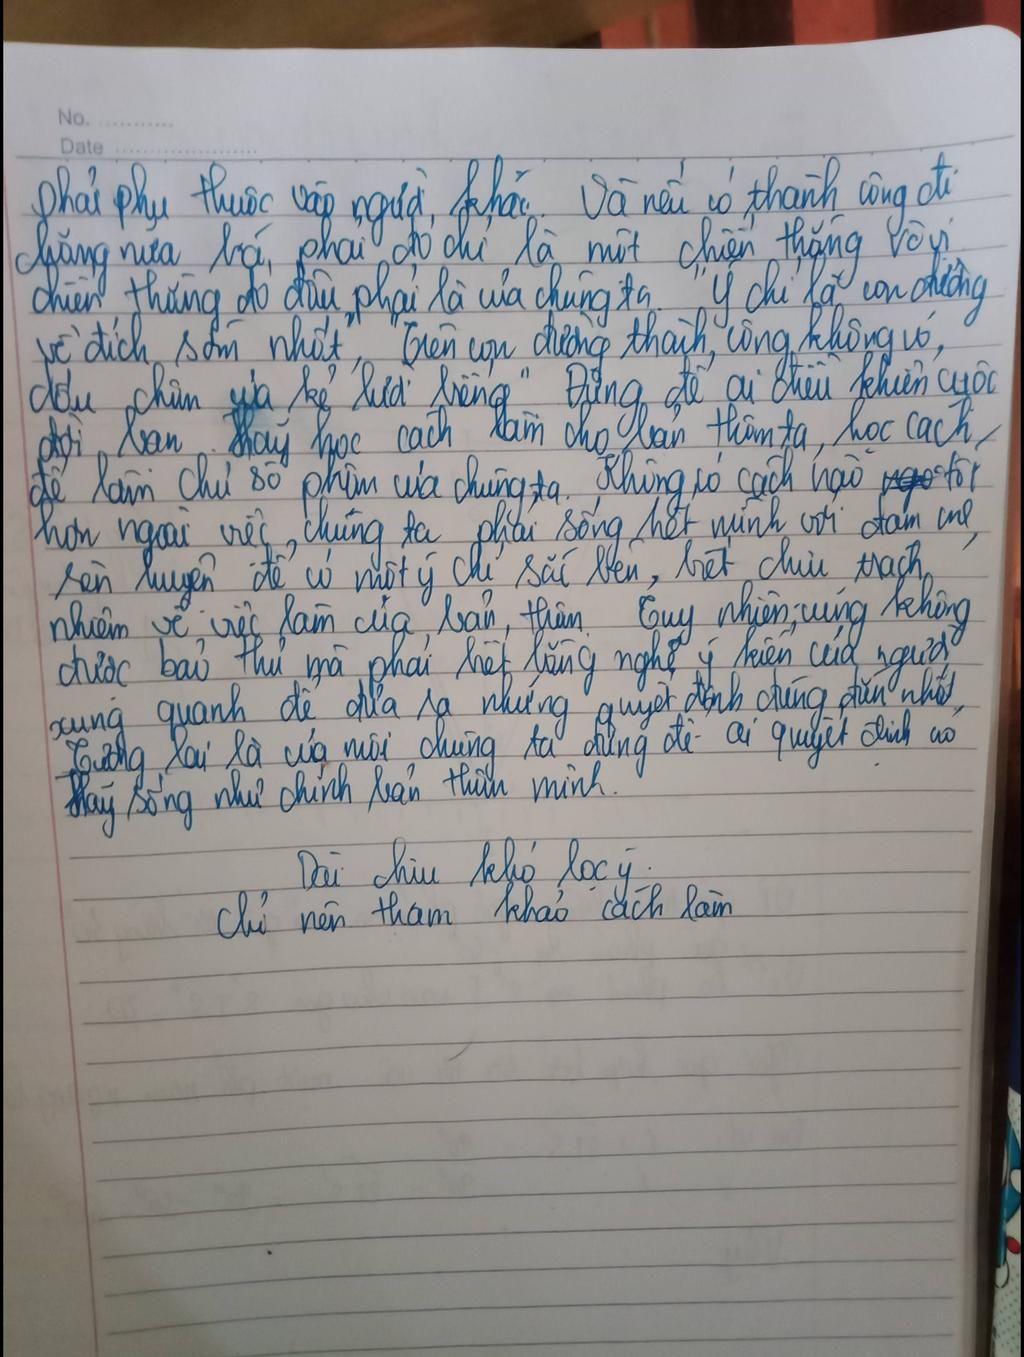 No. ...........
Date .....................
phải phụ thuộc vào người khác. Và nếu có thành công đi
chăng nữa há phải đó chỉ là một chiến thắng vô vị
chiến thắng đó đâu phải là của chúng ta. "Ý chí là con đường
về đích sớm nhất", "Trên con đường thành công không có
dấu chân của kẻ lười biếng" Đừng để ai điều khiển cuộc
đời bạn hãy học cách làm cho bản thân ta, học cách
để làm chủ số phận của chúng ta. Không có cách nào tốt
hơn ngoài việc chúng ta phải sống hết mình với đam mê,
rèn luyện để có một ý chí sắc bén, biết chịu trách
nhiệm về việc làm của bản thân. Tuy nhiên, cũng không
được bảo thủ mà phải biết lắng nghe ý kiến của người
xung quanh để đưa ra những quyết định đúng đắn nhất.
Tương lai là của mỗi chúng ta đừng để ai quyết định nó
hãy sống như chính bản thân mình.
Dài chịu khó lọc ý.
Chỉ nên tham khảo cách làm